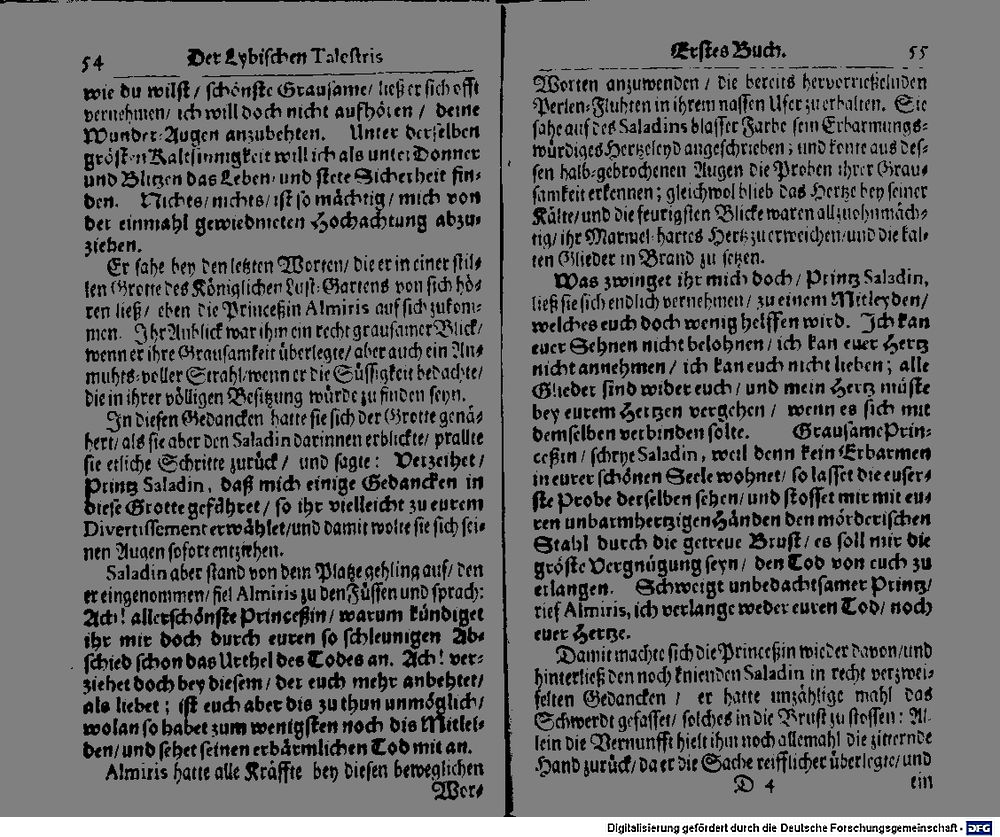 54 Der Lybischen Talestris
wie du wilst/ schönste Grausame/ ließ er sich offt
vernehmen/ ich will doch nicht aufhören/ deine
Wunder-Augen anzubehten. Unter derselben
grösten Kaltsinnigkeit will ich als unter Donner
und Blitzen das Leben- und stete Sicherheit fin-
den. Nichts/ nichts/ ist so mächtig/ mich von
der einmahl gewiedmeten Hochachtung abzu-
ziehen.
Er sahe bey den letzten Worten/ die er in einer stil-
len Grotte des Königlichen Lust-Gartens von sich hö-
ren ließ/ eben die Princeßin Almiris auf sich zukom-
men. Ihr Anblick war ihm ein recht grausamer Blick/
wenn er ihre Grausamkeit überlegte/ aber auch ein An-
muhts-voller Strahl/ wenn er die Süssigkeit bedachte/
die in ihrer völligen Besitzung würde zu finden seyn.
In diesen Gedancken hatte sie sich der Grotte genä-
hert/ als sie aber den Saladin darinnen erblickte/ prallte
sie etliche Schritte zurück/ und sagte: Verzeihet/
Printz Saladin, daß mich einige Gedancken in
diese Grotte geführet/ so ihr vielleicht zu eurem
Divertissement erwählet/ und damit wolte sie sich sei-
nen Augen sofort entziehen.
Saladin aber stand von dem Platze gehling auf/ den
er eingenommen/ fiel Almiris zu den Füssen und sprach:
Ach! allerschönste Princeßin/ warum kündiget
ihr mir doch durch euren so schleunigen Ab-
schied schon das Urthel des Todes an. Ach! ver-
ziehet doch bey diesem/ der euch mehr anbehtet/
als liebet; ist euch aber dis zu thun unmöglich/
wolan so habet zum wenigsten noch dis Mitlei-
den/ und sehet seinen erbärmlichen Tod mit an.
Almiris hatte alle Kräffte bey diesen beweglichen
Wor-
Erstes Buch. 55
Worten anzuwenden/ die bereits hervorrießelnden
Perlen-Fluhten in ihrem nassen Ufer zu erhalten. Sie
sahe aus des Saladins blasser Farbe sein Erbarmungs-
würdiges Hertzeleyd angeschrieben; und konte aus des-
sen halb-gebrochenen Augen die Proben ihrer Grau-
samkeit erkennen; gleichwol blieb das Hertze bey seiner
Kälte/ und die feurigsten Blicke waren allzuohnmäch-
tig/ ihr Marmel-hartes Hertz zu erweichen/ und die kal-
ten Glieder in Brand zu setzen.
Was zwinget ihr mich doch/ Printz Saladin,
ließ sie sich endlich vernehmen/ zu einem Mitleyden/
welches euch doch wenig helffen wird. Ich kan
euer Sehnen nicht belohnen/ ich kan euer Hertz
nicht annehmen/ ich kan euch nicht lieben; alle
Glieder sind wider euch/ und mein Hertz müste
bey eurem Hertzen vergehen/ wenn es sich mit
demselben verbinden solte. Grausame Prin-
ceßin/ schrye Saladin, weil denn kein Erbarmen
in eurer schönen Seele wohnet/ so lasset die euser-
ste Probe derselben sehen/ und stosset mir mit eu-
ren unbarmhertzigen Händen den mörderischen
Stahl durch die getreue Brust/ es soll mir die
gröste Vergnügung seyn/ den Tod von euch zu
erlangen. Schweigt unbedachtsamer Printz/
rief Almiris, ich verlange weder euren Tod/ noch
euer Hertze.
Damit machte sich die Princeßin wieder davon/ und
hinterließ den noch knienden Saladin in recht verzwei-
felten Gedancken/ er hatte unzählige mahl das
Schwerdt gefasset/ solches in die Brust zu stossen: Al-
lein die Vernunfft hielt ihm noch allemahl die zitternde
Hand zurück/ da er die Sache reifflicher überlegte/ und
D 4 ein
Digitalisierung gefördert durch die Deutsche Forschungsgemeinschaft - DFG